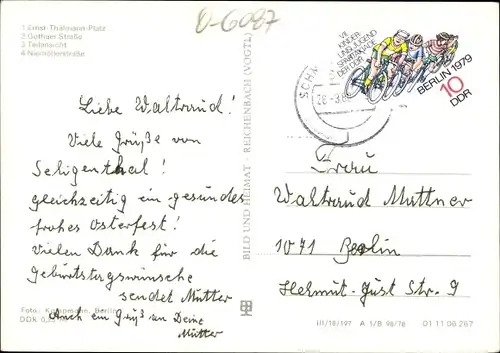 1 Ernst-Thälmann-Platz
2 Gothaer Straße
3 Teilansicht
4 Niemöllerstraße
0-6087
Liebe Waltraud!
Viele Grüße von
Seligenthal!
gleichzeitig ein gesundes
frohes Osterfest!
Vielen Dank für die
Geburtstagswünsche
sendet Mutter
Auch ein Gruß an Deine
Mutter
Foto: Kampmann, Berlin
DDK
BILD UND HEIMAT · REICHENBACH (VOGTL)
VII.
KINDER-
UND JUGEND
SPARTAKIADE
DER DDR
BERLIN 1979
10
DDR
SCHM
Frau
Waltraud Muttner
1071 Berlin
Helmut-Just Str. 9
III/18/197 A 1/B 98/78 01 11 06 267